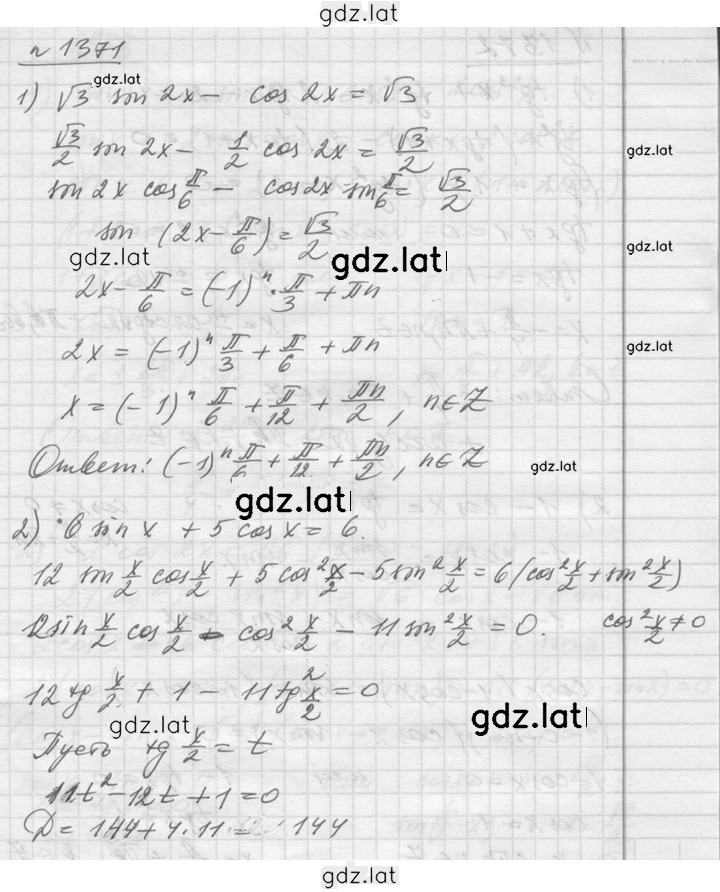 gdz.lat
n 1371
gdz.lat
1) √3 sin 2x - cos 2x = √3
√3/2 sin 2x - 1/2 cos 2x = √3/2
gdz.lat
sin 2x cos π/6 - cos 2x sin π/6 = √3/2
sin (2x - π/6) = √3/2
gdz.lat
gdz.lat
2x - π/6 = (-1)ⁿ · π/3 + πn
2x = (-1)ⁿ π/3 + π/6 + πn
gdz.lat
x = (-1)ⁿ π/6 + π/12 + πn/2, n∈Z
Ответ: (-1)ⁿ π/6 + π/12 + πn/2, n∈Z
gdz.lat
gdz.lat
2) 6 sin x + 5 cos x = 6.
12 sin x/2 cos x/2 + 5 cos² x/2 - 5 sin² x/2 = 6 (cos² x/2 + sin² x/2)
12 sin x/2 cos x/2 - cos² x/2 - 11 sin² x/2 = 0. cos² x/2 ≠ 0
12 tg x/2 + 1 - 11 tg² x/2 = 0
gdz.lat
gdz.lat
Пусть tg x/2 = t
11t² - 12t + 1 = 0
D = 144 + 4 · 11 = 144
gdz.lat